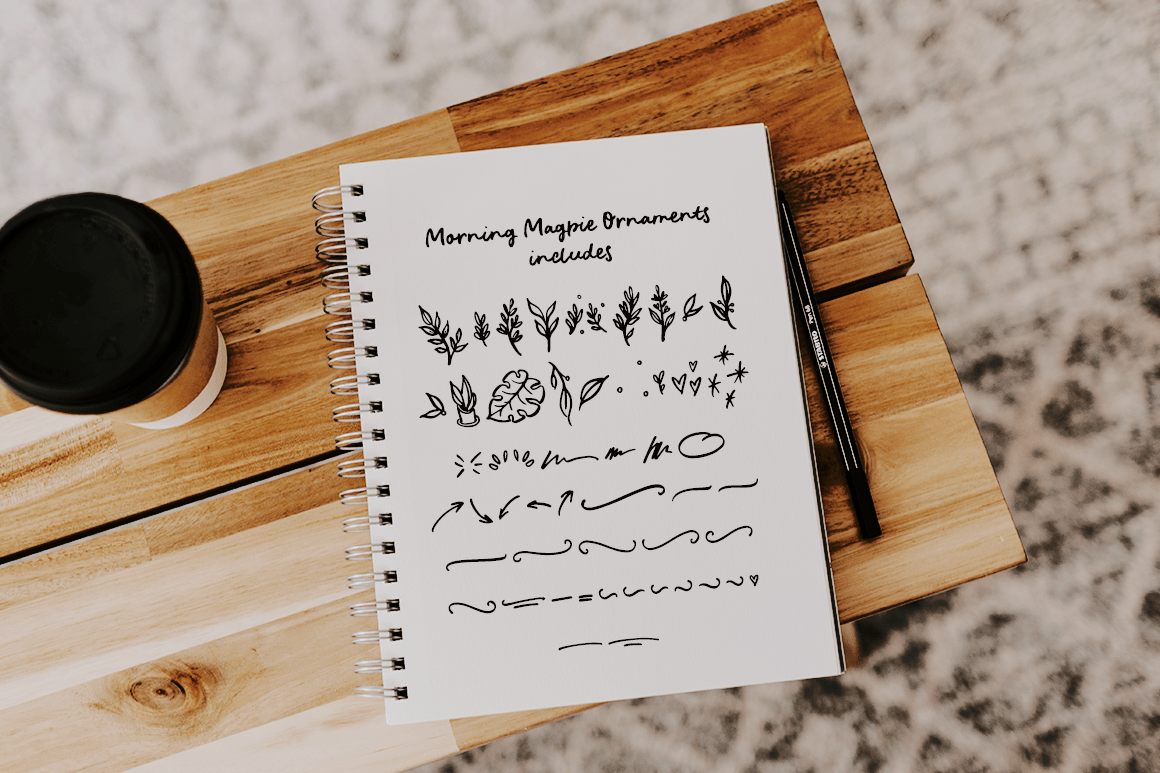 Morning Magpie Ornaments
includes
STABILO